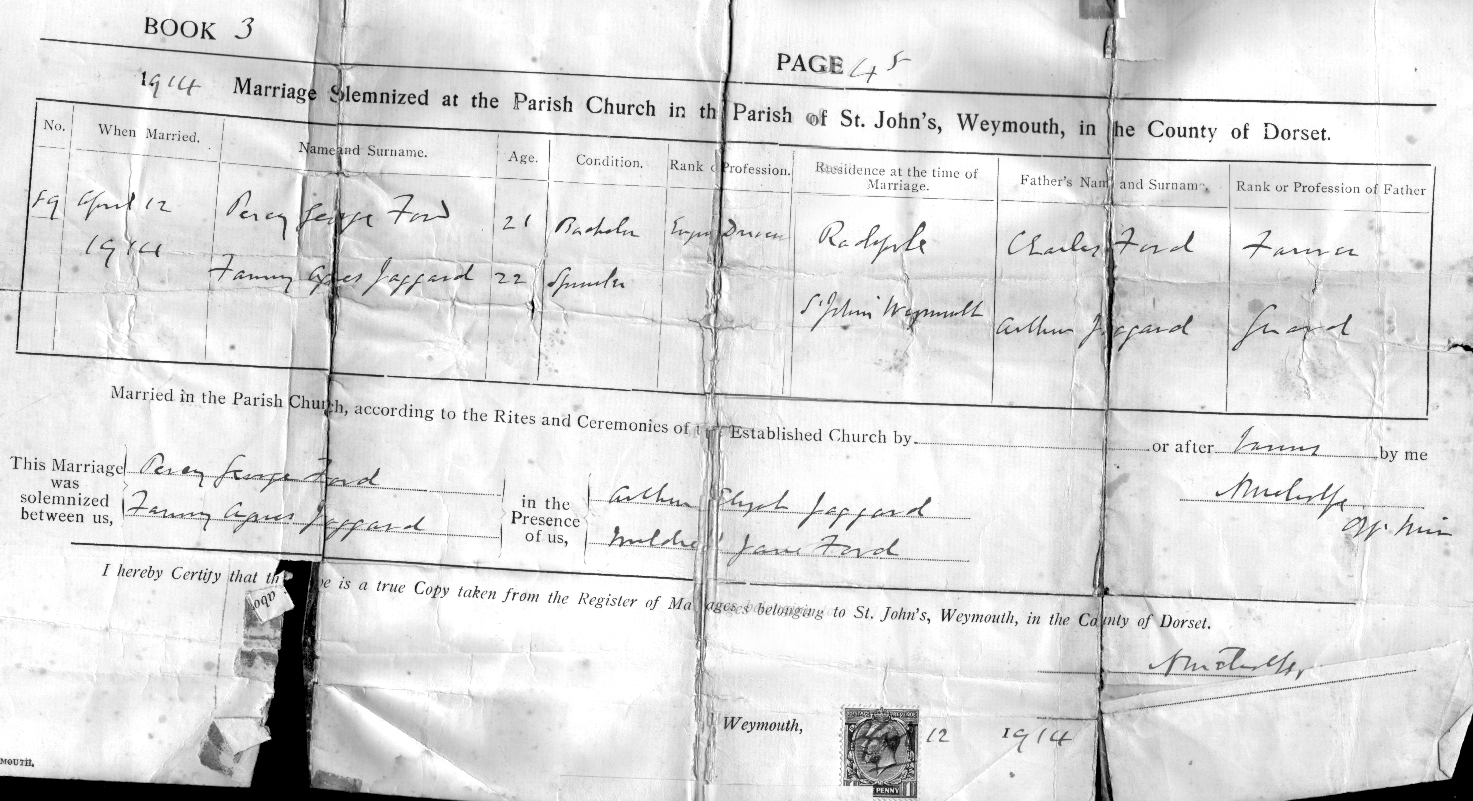 BOOK 3
PAGE 45
1914 Marriage Solemnized at the Parish Church in th Parish of St. John's, Weymouth, in the County of Dorset.
No. When Married. Name and Surname. Age. Condition. Rank o Profession. Residence at the time of Marriage. Father's Nam and Surname. Rank or Profession of Father
89 April 12 Percy George Ford 21 Bachelor Engine Driver Radipole Charles Ford Farmer
1914 Fanny Agnes Jaggard 22 Spinster St John's Weymouth Arthur Jaggard Guard
Married in the Parish Church, according to the Rites and Ceremonies of the Established Church by or after Banns by me
This Marriage was solemnized between us, Percy George Ford
Fanny Agnes Jaggard
in the Presence of us, Arthur Jaggard
Mildred Jane Ford
Off. Min
I hereby Certify that th e is a true Copy taken from the Register of Ma ages belonging to St. John's, Weymouth, in the County of Dorset.
abo
Weymouth, 12 1914
PENNY
MOUTH.